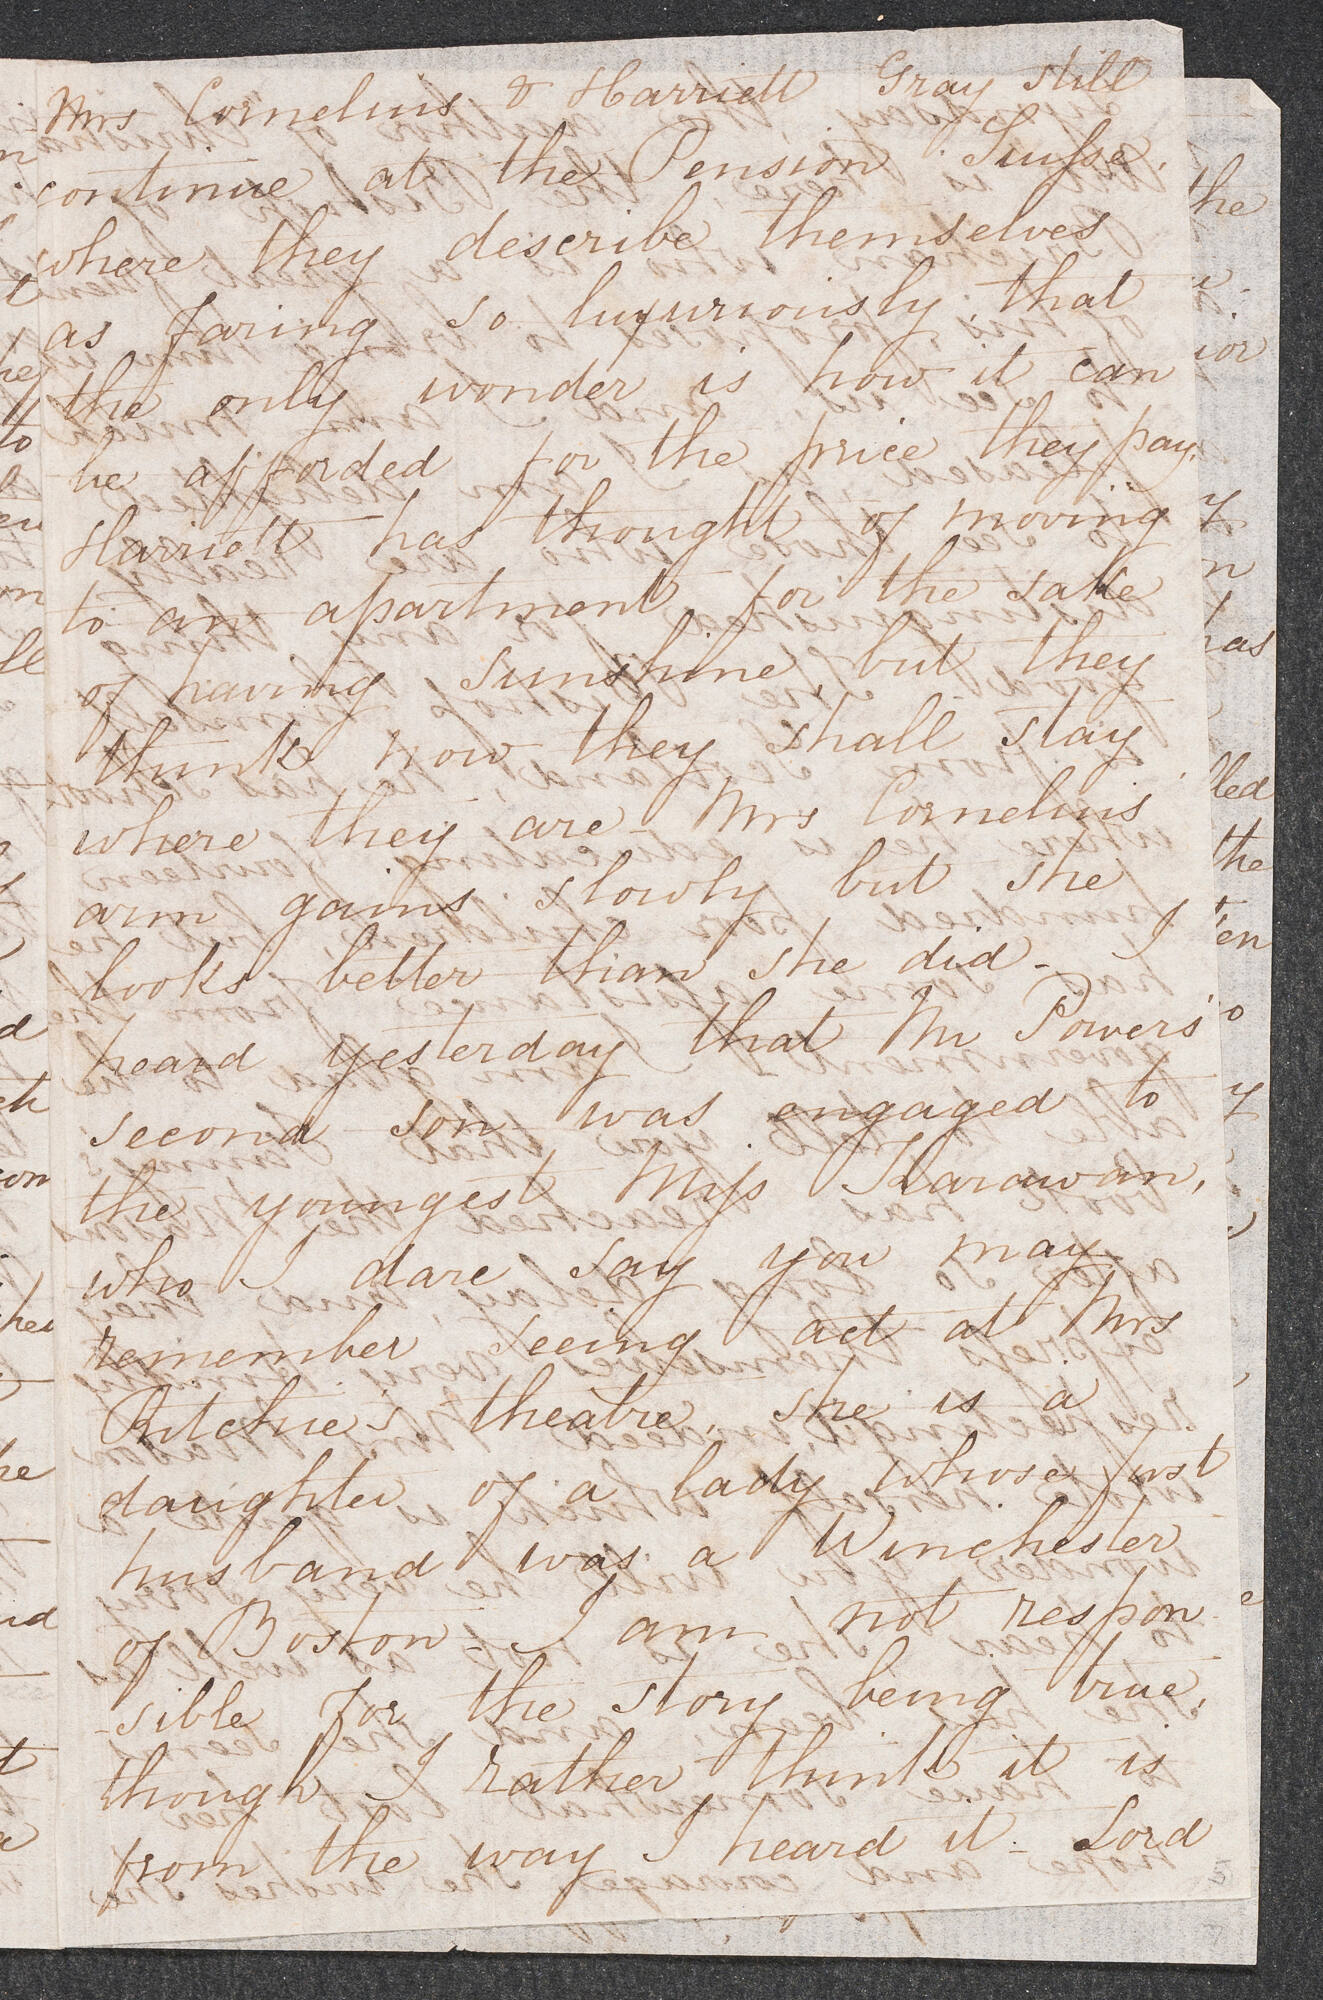 Mrs Cornelius & Harriett Gray still
continue at the Pension Suisse,
where they describe themselves
as faring so luxuriously, that
the only wonder is how it can
be afforded for the price they pay.
Harriett has thought of moving
to an apartment for the sake
of having sunshine, but they
think now they shall stay
where they are - Mrs Cornelius'
arm gains slowly but she
looks better than she did - I
heard yesterday that Mr Powers'
second son was engaged to
the youngest Miss
who I dare say you may
remember seeing act at Mrs
Ritchie's theatre, she is a
daughter of a lady whose first
husband was a Winchester
of Boston - I am not respon
-sible for the story being true,
though I rather think it is
from the way I heard it - Lord